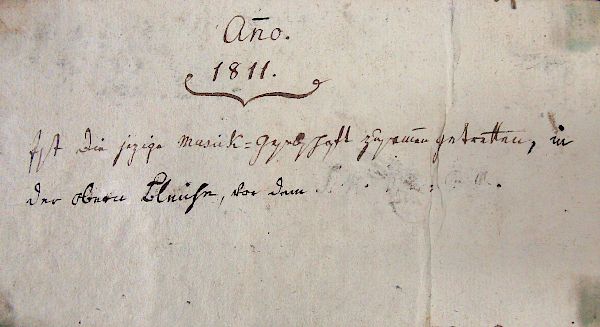 Año.
1811.
Ist die jezige Musick=Geselschaft zusamen getretten, in
der obern Bleiche, vor dem